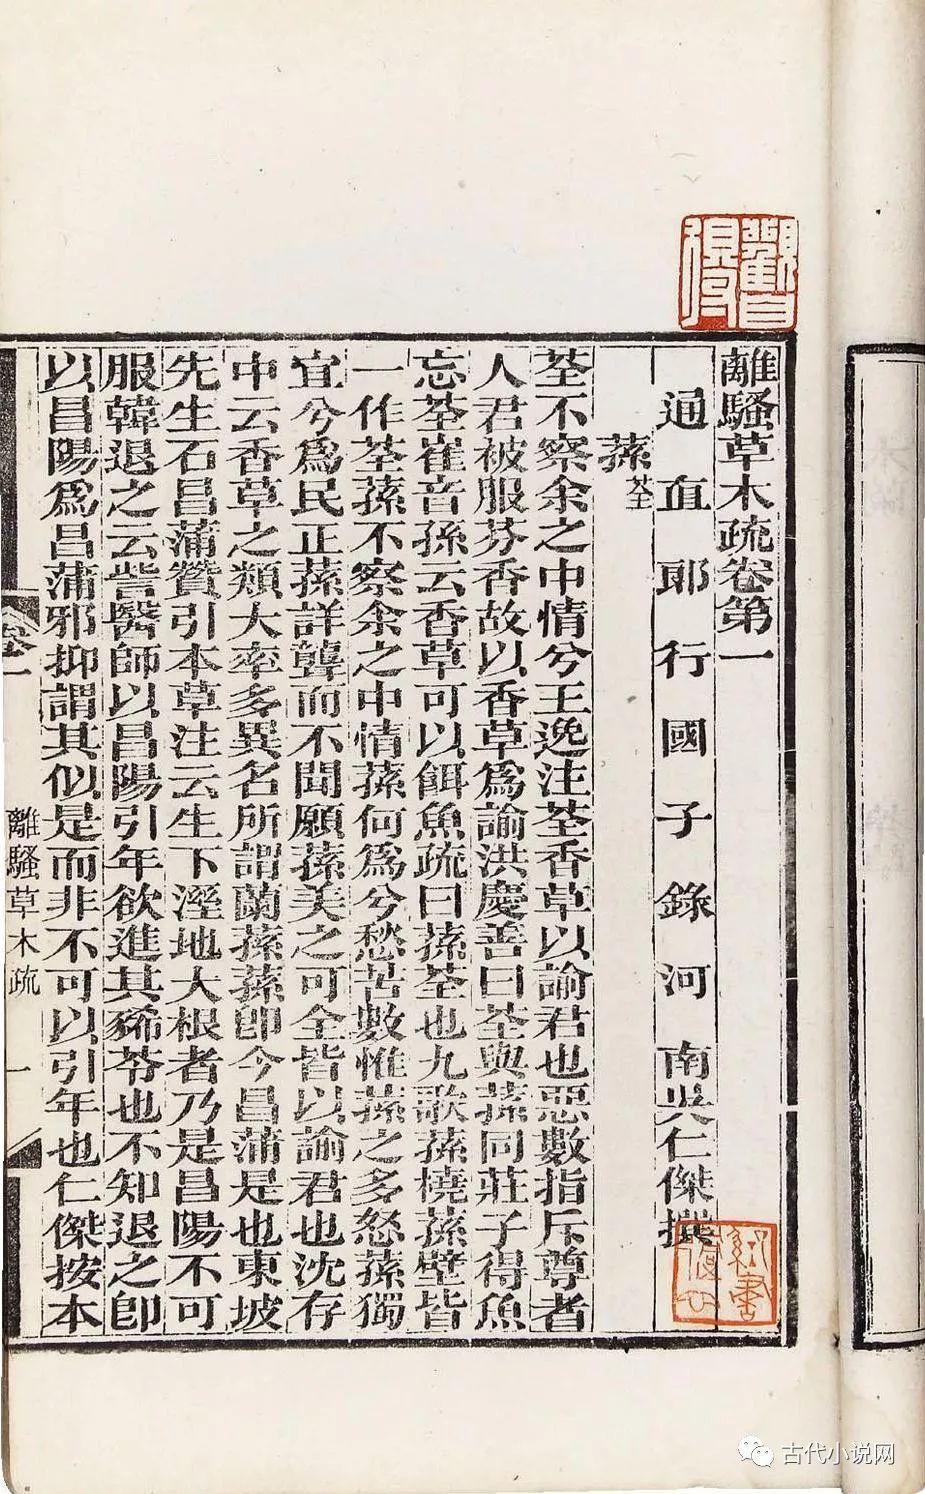 離騷草木疏卷第一
通直郎行國子錄河南吳仁傑撰
蓀荃
荃不察余之中情兮王逸注荃香草以諭君也惡數指斥尊者
人君被服芬香故以香草爲諭洪慶善曰荃與蓀同莊子得魚
忘荃崔音孫云香草可以餌魚疏曰蓀荃也九歌蓀橈蓀壁皆
一作荃蓀不察余之中情蓀何爲兮愁苦數惟蓀之多怒蓀獨
宜兮爲民正蓀詳聾而不聞願蓀美之可全皆以諭君也沈存
中云香草之類大率多異名所謂蘭蓀蓀卽今昌蒲是也東坡
先生石昌蒲贊引本草注云生下溼地大根者乃是昌陽不可
服韓退之云訾醫師以昌陽引年欲進其豨苓也不知退之卽
以昌陽爲昌蒲邪抑謂其似是而非不可以引年也仁傑按本
卷一
離騷草木疏
一
古代小说网